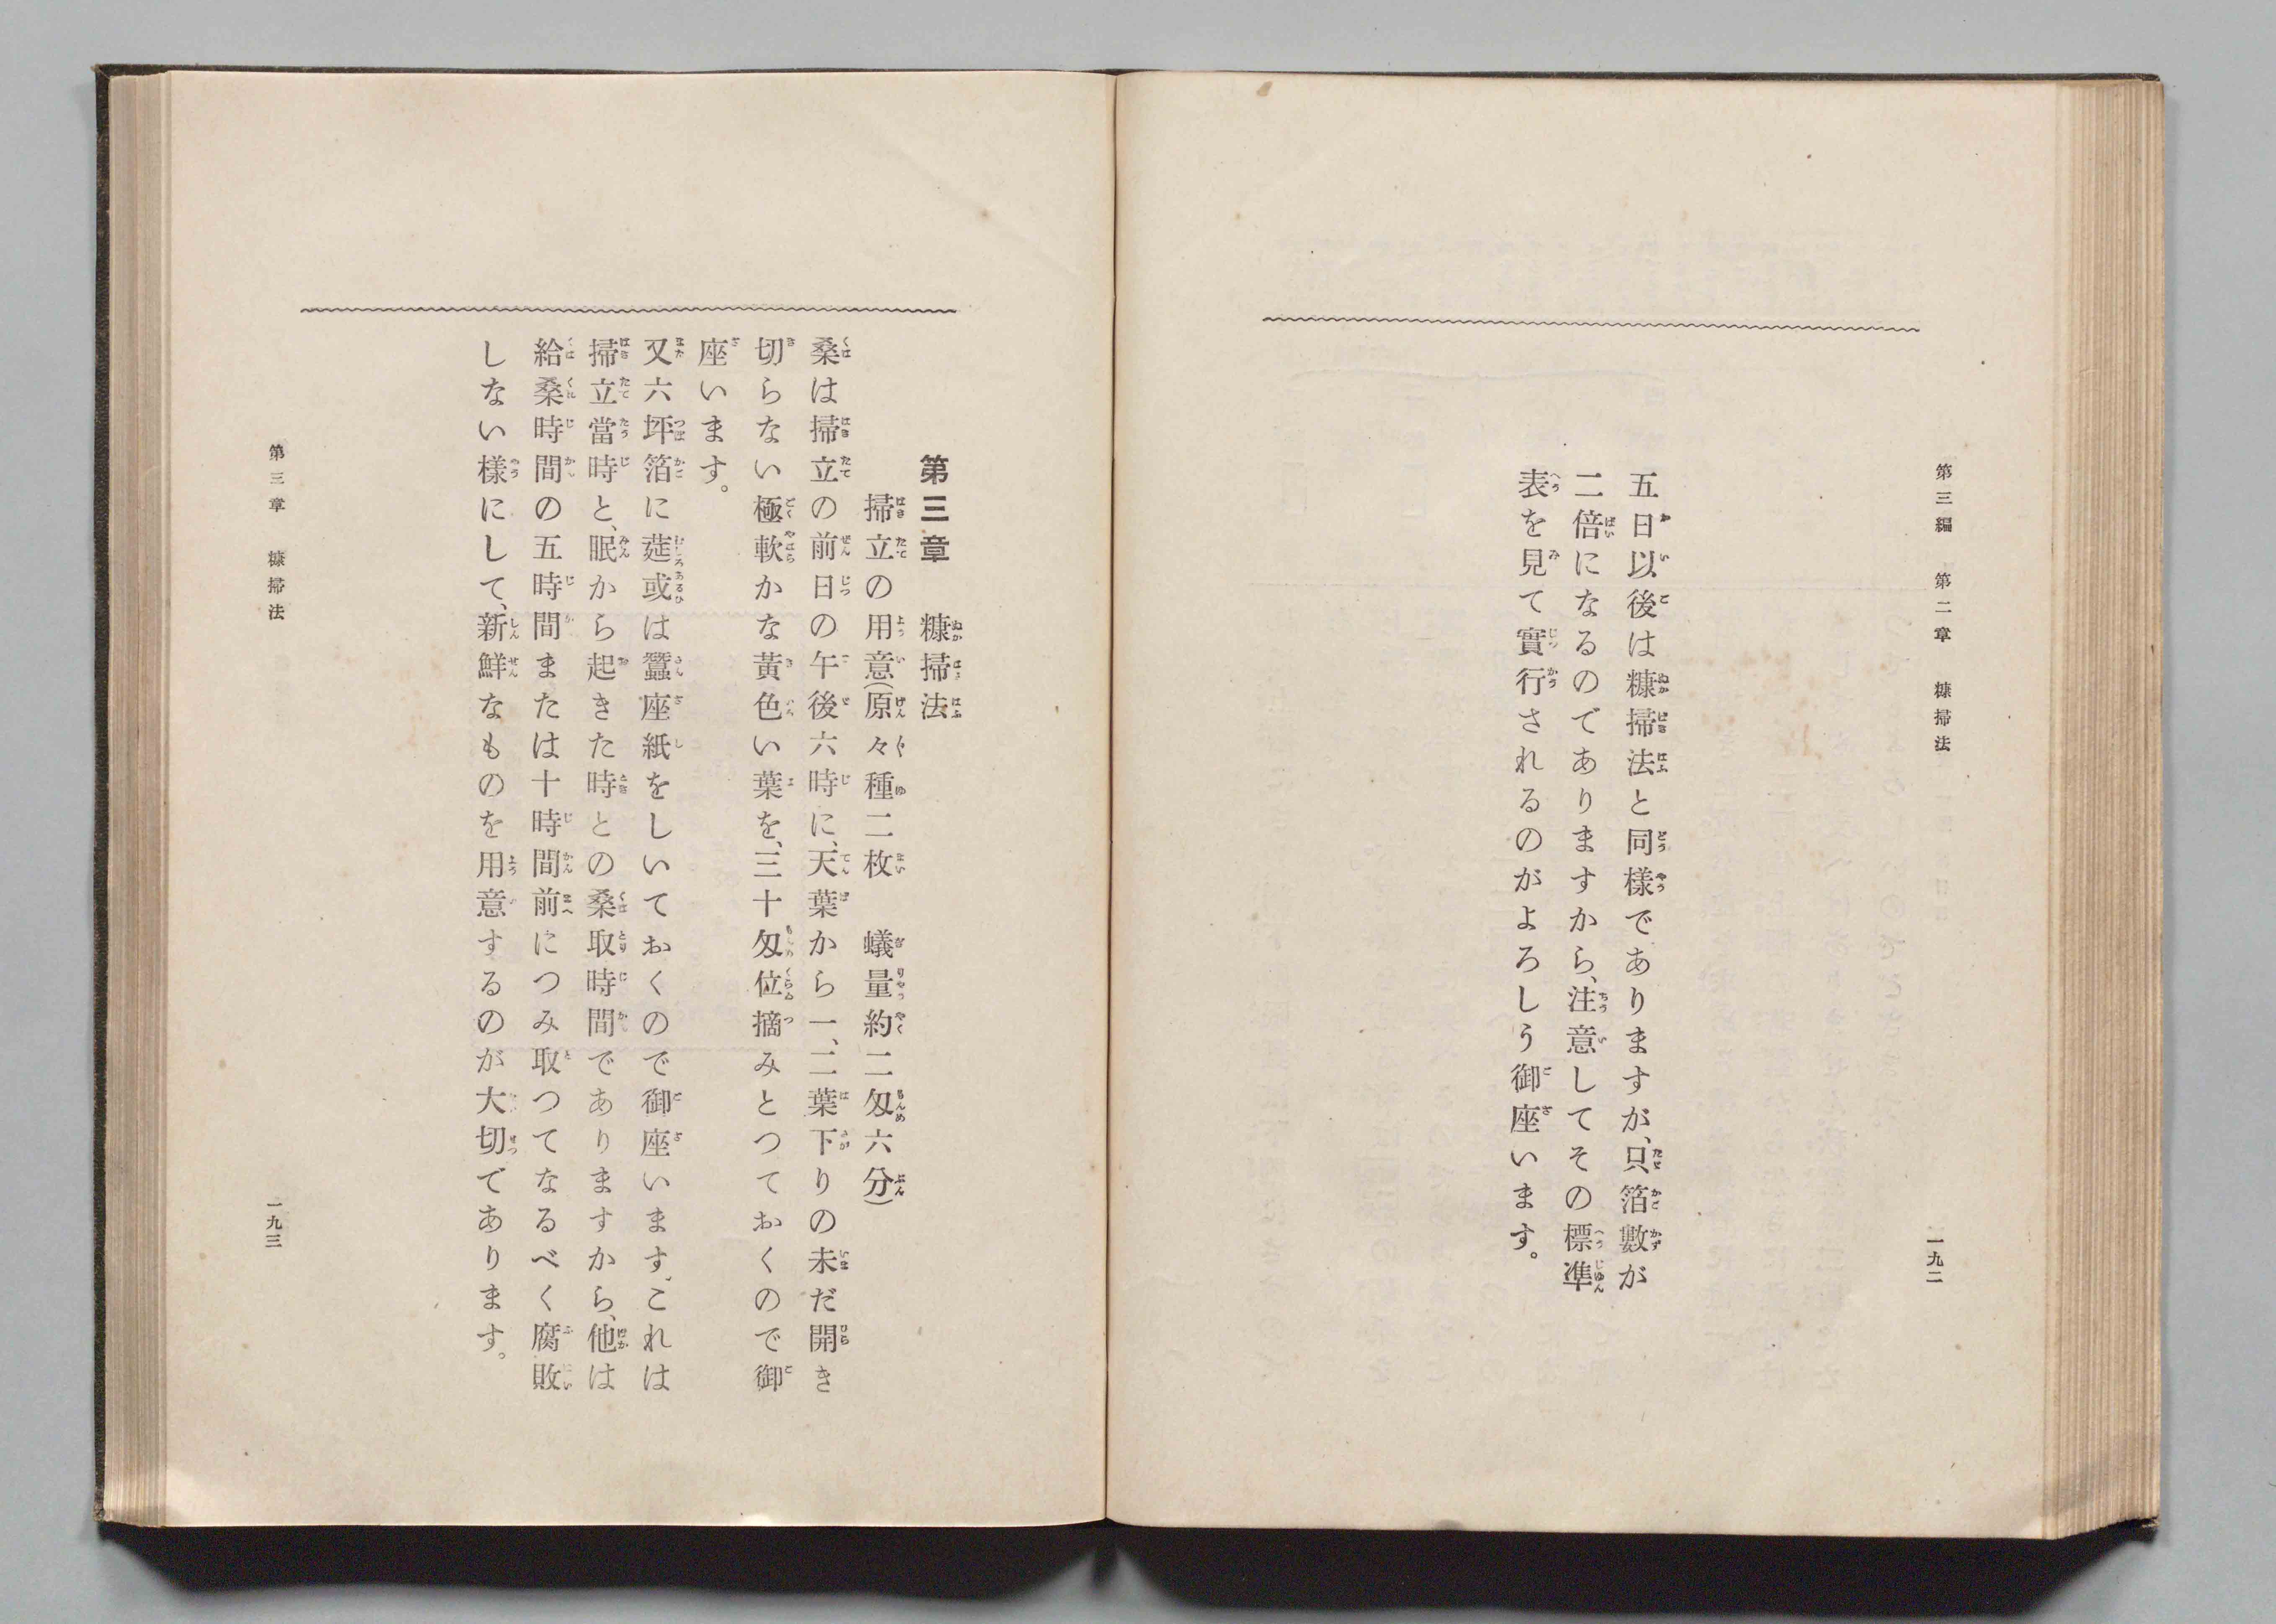 第三編　第二章　糠掃法
五日以後は糠掃法と同樣でありますが、只箔數が
二倍になるのでありますから、注意してその標準
表を見て實行されるのがよろしう御座います。
一九二
第三章　糠掃法
掃立の用意(原々種二枚　蟻量約二匁六分)
桑は掃立の前日の午後六時に、天葉から一、二葉下りの未だ開き
切らない極軟かな黃色い葉を、三十匁位摘みとつておくので御
座います。
又六坪箔に莚或は蠶座紙をしいておくので御座います。これは
掃立當時と、眠から起きた時との桑取時間でありますから、他は
給桑時間の五時間または十時間前につみ取つてなるべく腐敗
しない樣にして、新鮮なものを用意するのが大切であります。
第三章　糠掃法
一九三